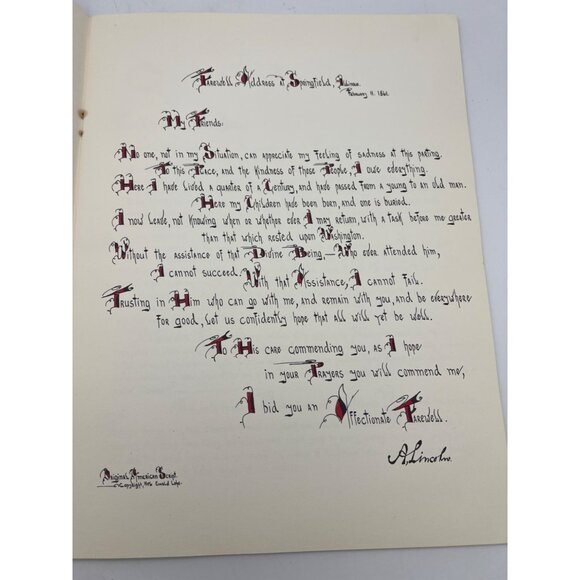 Farewell Address at Springfield, Illinois.
February 11. 1861.
My Friends:
No one, not in my Situation, can appreciate my feeling of sadness at this parting.
To this Place, and the kindness of those People, I owe everything.
Here I have lived a quarter of a Century, and have passed from a young to an old man.
Here my Children have been born, and one is buried.
I now leave, not knowing when or whether ever I may return, with a task before me greater
than that which rested upon Washington.
Without the assistance of that Divine Being,—Who ever attended him,
I cannot succeed. With that Assistance, I cannot fail.
Trusting in Him who can go with me, and remain with you, and be everywhere
for good, let us confidently hope that all will yet be well.
To His care commending you, as I hope
in your Prayers you will commend me,
I bid you an Affectionate Farewell.
A. Lincoln.
Original American Script
Copyright,